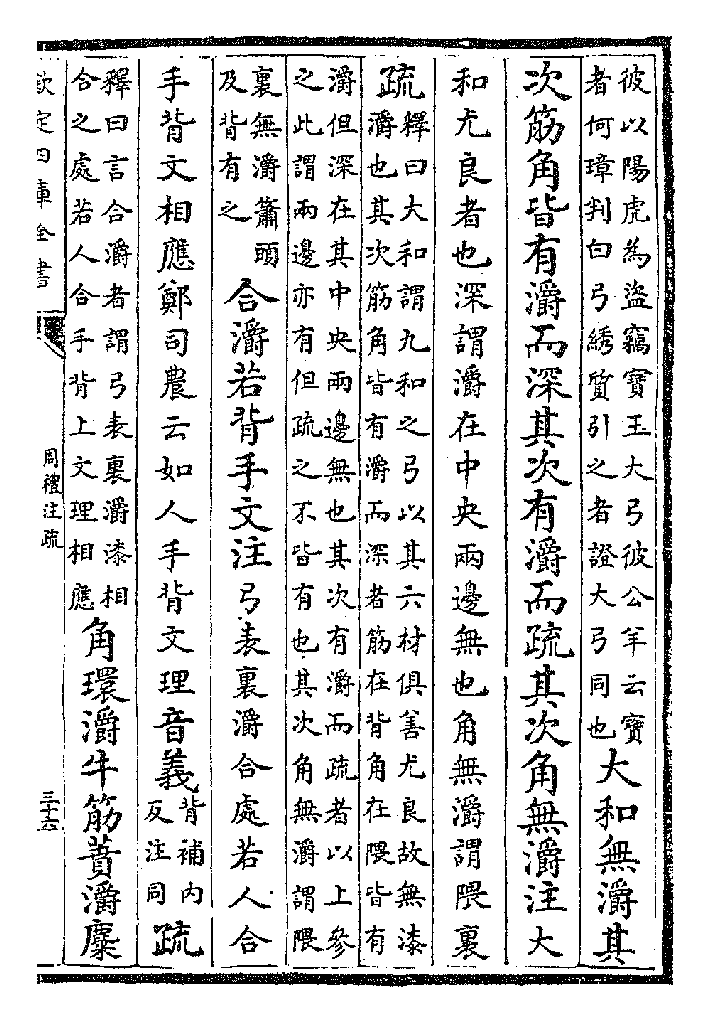 彼以陽虎為盜竊寶玉大弓彼公羊云寶
者何璋判白弓綉質引之者證大弓同也大和無灂其
次筋角皆有灂而深其次有灂而疏其次角無灂注大
和尤良者也深謂灂在中央兩邊無也角無灂謂隈裏
疏釋曰大和謂九和之弓以其六材俱善尤良故無漆
灂也其次筋角皆有灂而深者筋在背角在隈皆有
灂但深在其中央兩邊無也其次有灂而疏者以上參
之此謂兩邊亦有但疏之不皆有也其次角無灂謂隈
裏無灂簫頭
及背有之合灂若背手文注弓表裏灂合處若人合
手背文相應鄭司農云如人手背文理音義背補內
反注同疏
釋曰言合灂者謂弓表裏灂漆相
合之處若人合手背上文理相應角環灂牛筋蕡灂麋
欽定四庫全書
周禮注疏
三十六